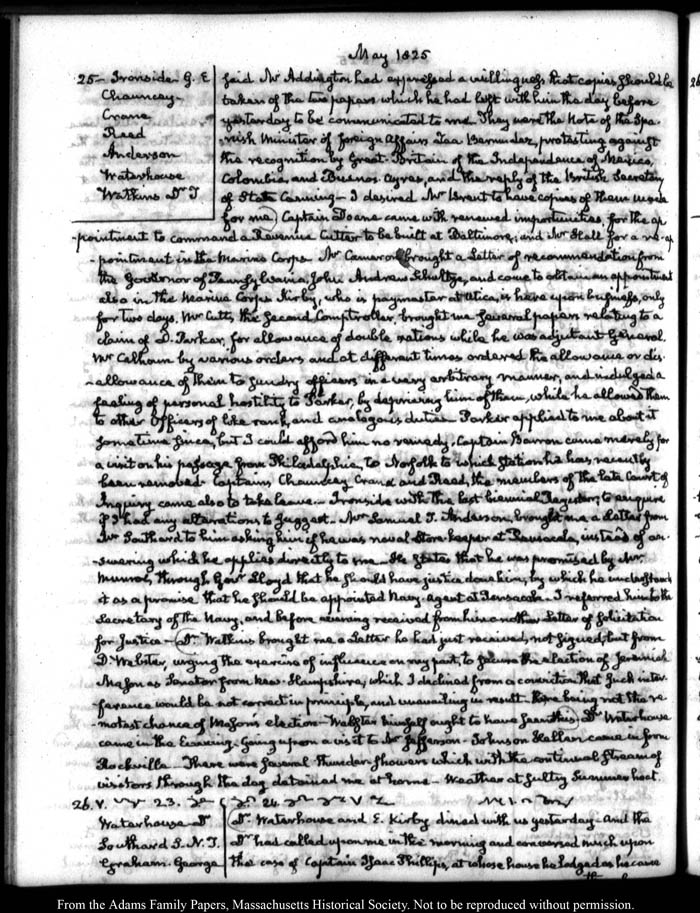 May 1825
25 — Ironside. G. E
Chauncey
Crane
Reed
Anderson
Waterhouse
Watkins Dr T
said Mr Addington had expressed a willingness that copies should be
taken of the two papers which he had left with him the day before
yesterday to be communicated to me. They were the Note of the Spa-
-nish Minister of foreign Affairs Zea Bermudez, protesting against
the recognition by Great-Britain of the Independence of Mexico,
Colombia and Buenos Ayres, and the reply of the British Secretary
of State Canning — I desired Mr Brent to have copies of them made
for me. Captain Doane came with renewed importunities for the ap
-pointment to command a Revenue Cutter to be built at Baltimore; and Mr Hall for a re-ap
-pointment in the Marine Corps. Mr Cameron brought a Letter of recommendation from
the Governor of Pennsylvania, John Andrew Shultze, and came to obtain an appointment
also in the Marine Corps. Kirby, who is paymaster at Utica, is here upon business, only
for two days. Mr Cutts, the second Comptroller, brought me several papers relating to a
claim of D. Parker, for allowance of double rations while he was adjutant General.
Mr Calhoun by various orders and at different times ordered the allowance or dis-
-allowance of them to sundry officers in a very arbitrary manner, and indulged a
feeling of personal hostility to Parker, by depriving him of them, while he allowed them
to other Officers of like rank, and analogous duties. Parker applied to me about it
sometime since, but I could afford him no remedy. Captain Barron came merely for
a visit on his passage from Philadelphia, to Norfolk to which Station he has recently
been removed. Captains Chauncey Crane and Reed, the members of the late Court of
Inquiry came also to take leave — Ironside with the last biennial Register, to enquire
if I had any alterations to suggest. Mr Samuel T. Anderson, brought me a Letter from
Mr Southard to him asking him if he was naval Store-keeper at Pensacola, instead of an-
-swering which he applies directly to me. He states that he was promised by Mr
Munroe, through Govr Lloyd that he should have justice done him; by which he understands
it as a promise that he should be appointed Navy agent at Pensacola. I referred him to the
Secretary of the Navy, and before evening received from him another Letter of solicitation
for Justice — Dr Watkins brought me a Letter he had just received, not signed, but from
D. Webster, urging the exercise of influence on my part, to secure the election of Jeremiah
Mason as Senator from New-Hampshire, which I declined from a conviction that such inter-
ference would be not correct in principle, and unavailing in result. there being not the re-
-motest chance of Mason's election — Webster himself ought to have seen this. Dr Waterhouse
came in the Evening. Going upon a visit to Mr Jefferson. Johnson Hellen came in from
Rockville — There were several thunder showers which with the continual stream of
visitors through the day detained me at home — Weather at sultry summer heat.
26. V.
Waterhouse Dr
Southard S. N. T.
Graham. George
Dr Waterhouse and E. Kirby dined with us yesterday. And the
Dr had called upon me in the morning and conversed much upon
the case of Captain Isaac Phillips, at whose house he lodged as he came
From the Adams Family Papers, Massachusetts Historical Society. Not to be reproduced without permission.